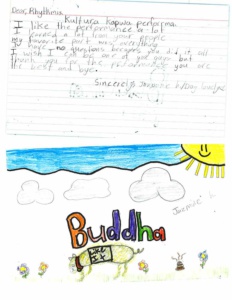 Dear, Rhythmia
Kultura kapwa performa.
I like the performance a lot
I learned a lot from your people
my favorite part was everything
I have no questions because you did it all
I wish I can be one of you guys but
thank you for the performance you are
the best and bye.
Sincerely, Jasmine
Buddha
Jasmine